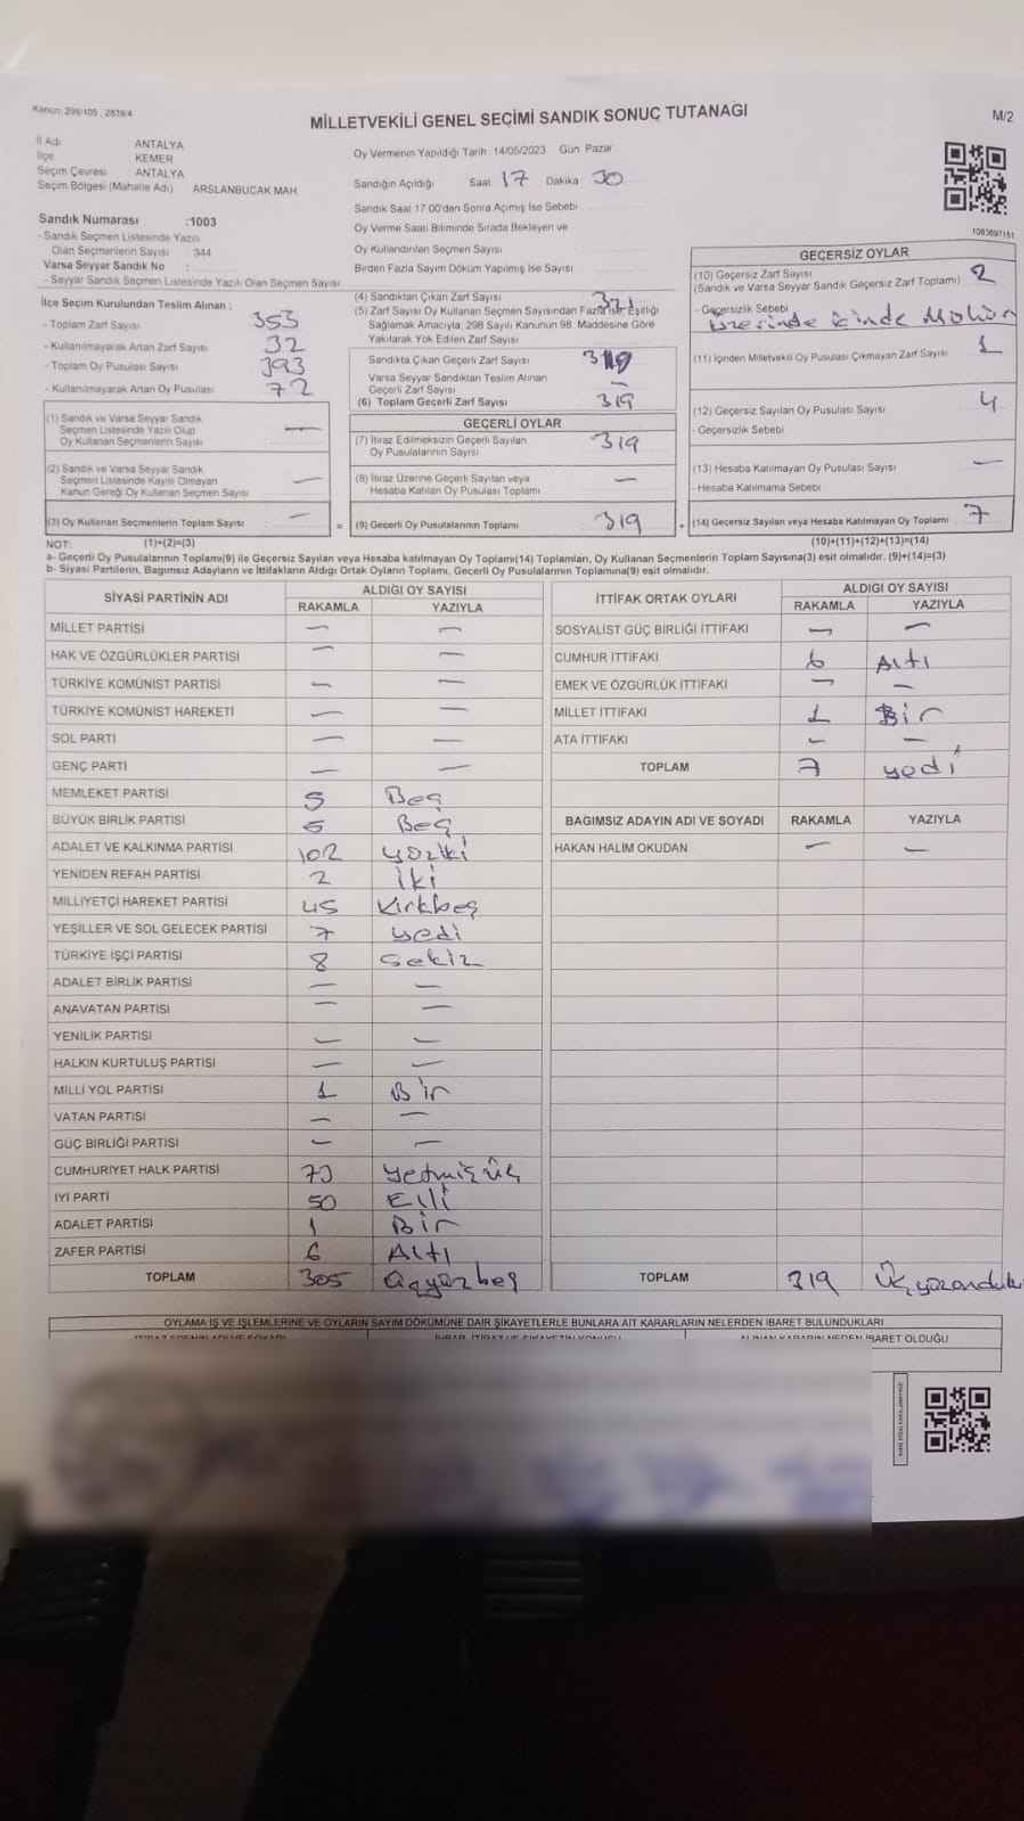 Kanun: 298/105 , 2839/4
MİLLETVEKİLİ GENEL SEÇİMİ SANDIK SONUÇ TUTANAĞI
M/2
İl Adı ANTALYA
İlçe KEMER
Seçim Çevresi ANTALYA
Seçim Bölgesi (Mahalle Adı) ARSLANBUCAK MAH.
Sandık Numarası :1003
- Sandık Seçmen Listesinde Yazılı
Olan Seçmenlerin Sayısı : 344
Varsa Seyyar Sandık No :
- Seyyar Sandık Seçmen Listesinde Yazılı Olan Seçmen Sayısı
İlçe Seçim Kurulundan Teslim Alınan :
- Toplam Zarf Sayısı 353
- Kullanılmayarak Artan Zarf Sayısı 32
- Toplam Oy Pusulası Sayısı 393
- Kullanılmayarak Artan Oy Pusulası 72
(1) Sandık ve Varsa Seyyar Sandık
Seçmen Listesinde Yazılı Olup
Oy Kullanan Seçmenlerin Sayısı —
(2) Sandık ve Varsa Seyyar Sandık
Seçmen Listesinde Kayıtlı Olmayan
Kanun Gereği Oy Kullanan Seçmen Sayısı —
(3) Oy Kullanan Seçmenlerin Toplam Sayısı —
Oy Vermenin Yapıldığı Tarih: 14/05/2023 Gün Pazar
Sandığın Açıldığı Saat 17 Dakika 30
Sandık Saat 17:00'dan Sonra Açılmış İse Sebebi
Oy Verme Saati Bitiminde Sırada Bekleyen ve
Oy Kullandırılan Seçmen Sayısı
Birden Fazla Sayım Döküm Yapılmış İse Sayısı
(4) Sandıktan Çıkan Zarf Sayısı 321
(5) Zarf Sayısı Oy Kullanan Seçmen Sayısından Fazla ise, Eşitliği
Sağlamak Amacıyla, 298 Sayılı Kanunun 98. Maddesine Göre
Yakılarak Yok Edilen Zarf Sayısı
Sandıkta Çıkan Geçerli Zarf Sayısı 319
Varsa Seyyar Sandıktan Teslim Alınan
Geçerli Zarf Sayısı —
(6) Toplam Geçerli Zarf Sayısı 319
GEÇERLİ OYLAR
(7) İtiraz Edilmeksizin Geçerli Sayılan
Oy Pusulalarının Sayısı 319
(8) İtiraz Üzerine Geçerli Sayılan veya
Hesaba Katılan Oy Pusulası Toplamı —
= (9) Geçerli Oy Pusulalarının Toplamı 319
1083697151
GEÇERSİZ OYLAR
(10) Geçersiz Zarf Sayısı 2
(Sandık ve Varsa Seyyar Sandık Geçersiz Zarf Toplamı)
- Geçersizlik Sebebi
üzerinde içinde Mühür
(11) İçinden Milletvekili Oy Pusulası Çıkmayan Zarf Sayısı 1
(12) Geçersiz Sayılan Oy Pusulası Sayısı 4
- Geçersizlik Sebebi
(13) Hesaba Katılmayan Oy Pusulası Sayısı —
- Hesaba Katılmama Sebebi
+ (14) Geçersiz Sayılan veya Hesaba Katılmayan Oy Toplamı 7
NOT: (1)+(2)=(3) (10)+(11)+(12)+(13)=(14)
a- Geçerli Oy Pusulalarının Toplamı(9) ile Geçersiz Sayılan veya Hesaba katılmayan Oy Toplamı(14) Toplamları, Oy Kullanan Seçmenlerin Toplam Sayısına(3) eşit olmalıdır. (9)+(14)=(3)
b- Siyasi Partilerin, Bağımsız Adayların ve İttifakların Aldığı Ortak Oyların Toplamı, Geçerli Oy Pusulalarının Toplamına(9) eşit olmalıdır.
SİYASİ PARTİNİN ADI ALDIĞI OY SAYISI
RAKAMLA YAZIYLA
MİLLET PARTİSİ — —
HAK VE ÖZGÜRLÜKLER PARTİSİ — —
TÜRKİYE KOMÜNİST PARTİSİ — —
TÜRKİYE KOMÜNİST HAREKETİ — —
SOL PARTİ — —
GENÇ PARTİ — —
MEMLEKET PARTİSİ 5 Beş
BÜYÜK BİRLİK PARTİSİ 5 Beş
ADALET VE KALKINMA PARTİSİ 102 yüziki
YENİDEN REFAH PARTİSİ 2 iki
MİLLİYETÇİ HAREKET PARTİSİ 45 Kırkbeş
YEŞİLLER VE SOL GELECEK PARTİSİ 7 yedi
TÜRKİYE İŞÇİ PARTİSİ 8 Sekiz
ADALET BİRLİK PARTİSİ — —
ANAVATAN PARTİSİ — —
YENİLİK PARTİSİ — —
HALKIN KURTULUŞ PARTİSİ — —
MİLLİ YOL PARTİSİ 1 Bir
VATAN PARTİSİ — —
GÜÇ BİRLİĞİ PARTİSİ — —
CUMHURİYET HALK PARTİSİ 73 yetmişüç
İYİ PARTİ 50 Elli
ADALET PARTİSİ 1 Bir
ZAFER PARTİSİ 6 Altı
TOPLAM 305 üçyüzbeş
İTTİFAK ORTAK OYLARI ALDIĞI OY SAYISI
RAKAMLA YAZIYLA
SOSYALİST GÜÇ BİRLİĞİ İTTİFAKI — —
CUMHUR İTTİFAKI 6 Altı
EMEK VE ÖZGÜRLÜK İTTİFAKI — —
MİLLET İTTİFAKI 1 Bir
ATA İTTİFAKI — —
TOPLAM 7 yedi
BAĞIMSIZ ADAYIN ADI VE SOYADI RAKAMLA YAZIYLA
HAKAN HALİM OKUDAN — —
TOPLAM 319
OYLAMA İŞ VE İŞLEMLERİNE VE OYLARIN SAYIM DÖKÜMÜNE DAİR ŞİKAYETLERLE BUNLARA AİT KARARLARIN NELERDEN İBARET BULUNDUKLARI
İBARET OLDUĞU